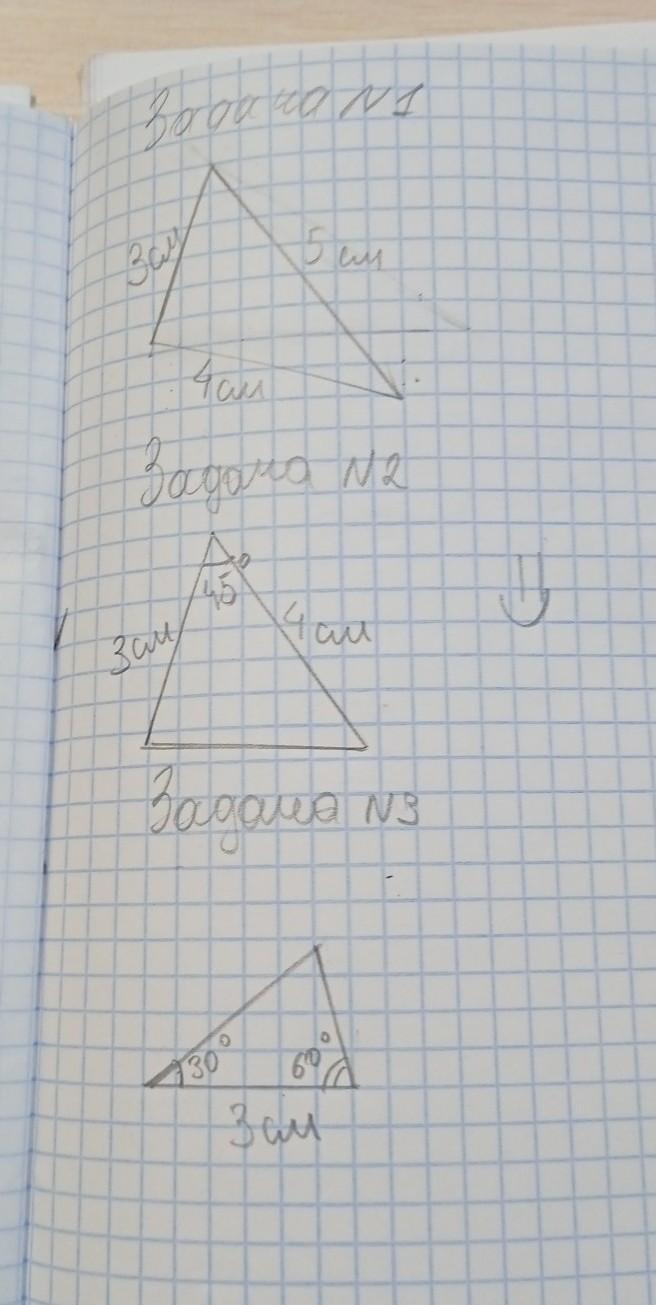 Задача N1
3см
5 см
4см
Задача N2
45°
3см
4см
Задача N3
30° 60°
3см